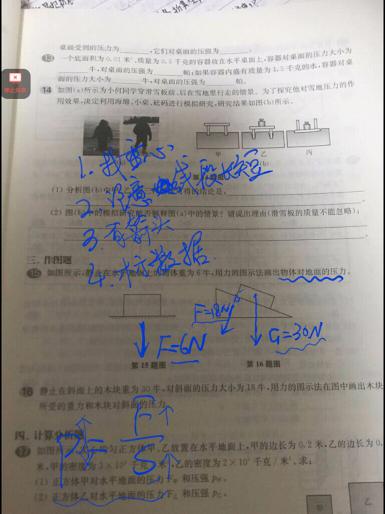 桌面受到的压力为________,它们对桌面的压强为________.
13 一个底面积为0.01米²、质量为0.5千克的容器放在水平桌面上,容器对桌面的压力大小为
________牛,对桌面的压强为________帕;如果容器内盛有质量为1.5千克的水,容器对桌
面的压力大小为________牛,对桌面的压强为________帕.
14 如图(a)所示为小何同学穿滑雪板前、后在雪地里行走的情景。为了探究他对雪地压力的作
用效果,决定利用海绵、小桌、砝码进行模拟研究,研究结果如图(b)所示.
甲 乙 丙
1.找重心
(1) 分析图(b)
结论是
2.注意 线段
(2) 图(b)中的模拟研究能否解释图(a)中的情景?请说出理由(滑雪板的质量不能忽略):
3.有箭头
4.标数据
三、作图题
15 如图所示,静止在水平地面上的物体重为6牛,用力的图示法画出物体对地面的压力.
F=18N
F=6N
G=30N
第15题图 第16题图
16 静止在斜面上的木块重为30牛,对斜面的压力大小为18牛,用力的图示法在图中画出木块
所受的重力和木块对斜面的压力.
四、计算分析题
17 如图所示,
均匀正方体甲、乙放置在水平地面上,甲的边长为0.2米,乙的边长为0.
米,甲的密度为3×10³千克/米³,乙的密度为2×10³千克/米³.求:
(1) 正方体甲对水平地面的压力F甲和压强p甲.
(2) 正方体乙对水平地面的压力F乙和压强p乙.
乙